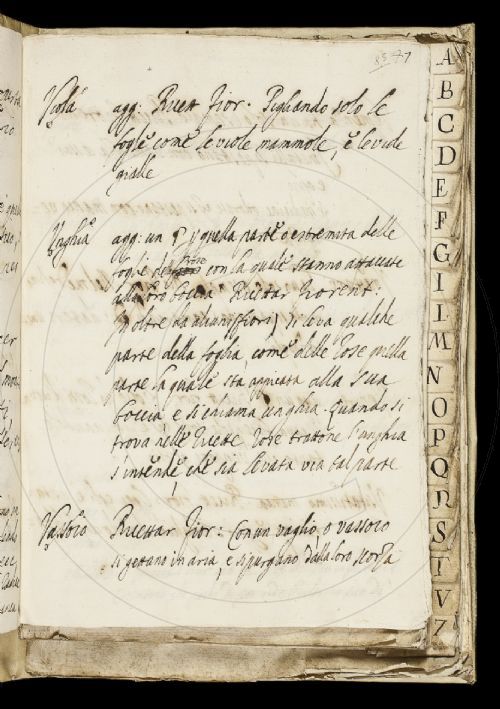 85 77
Viola agg: Ricet Fior. Pigliando solo le
foglie come le viole mammole, e le viole
gialle
Unghia agg: un quella parte o estremità delle
foglie del fiore con la quale stanno attaccate
alla loro boccia Ricettar Fiorent:
Inoltre da alcuni (fiori) si leva qualche
parte della foglia, come delle rose quella
parte la quale sta appiccata alla sua
boccia e si chiama unghia. Quando si
trova nelle Ricette rose trattone l'unghia
s'intende che sia levata via tal parte
Vassoio Ricettar Fior: Con un vaglio, o vassoio
si gettano in aria, e si purgano dalla loro scorza
A
B
C
D
E
F
G
I
L
M
N
O
P
Q
R
S
T
V
Z